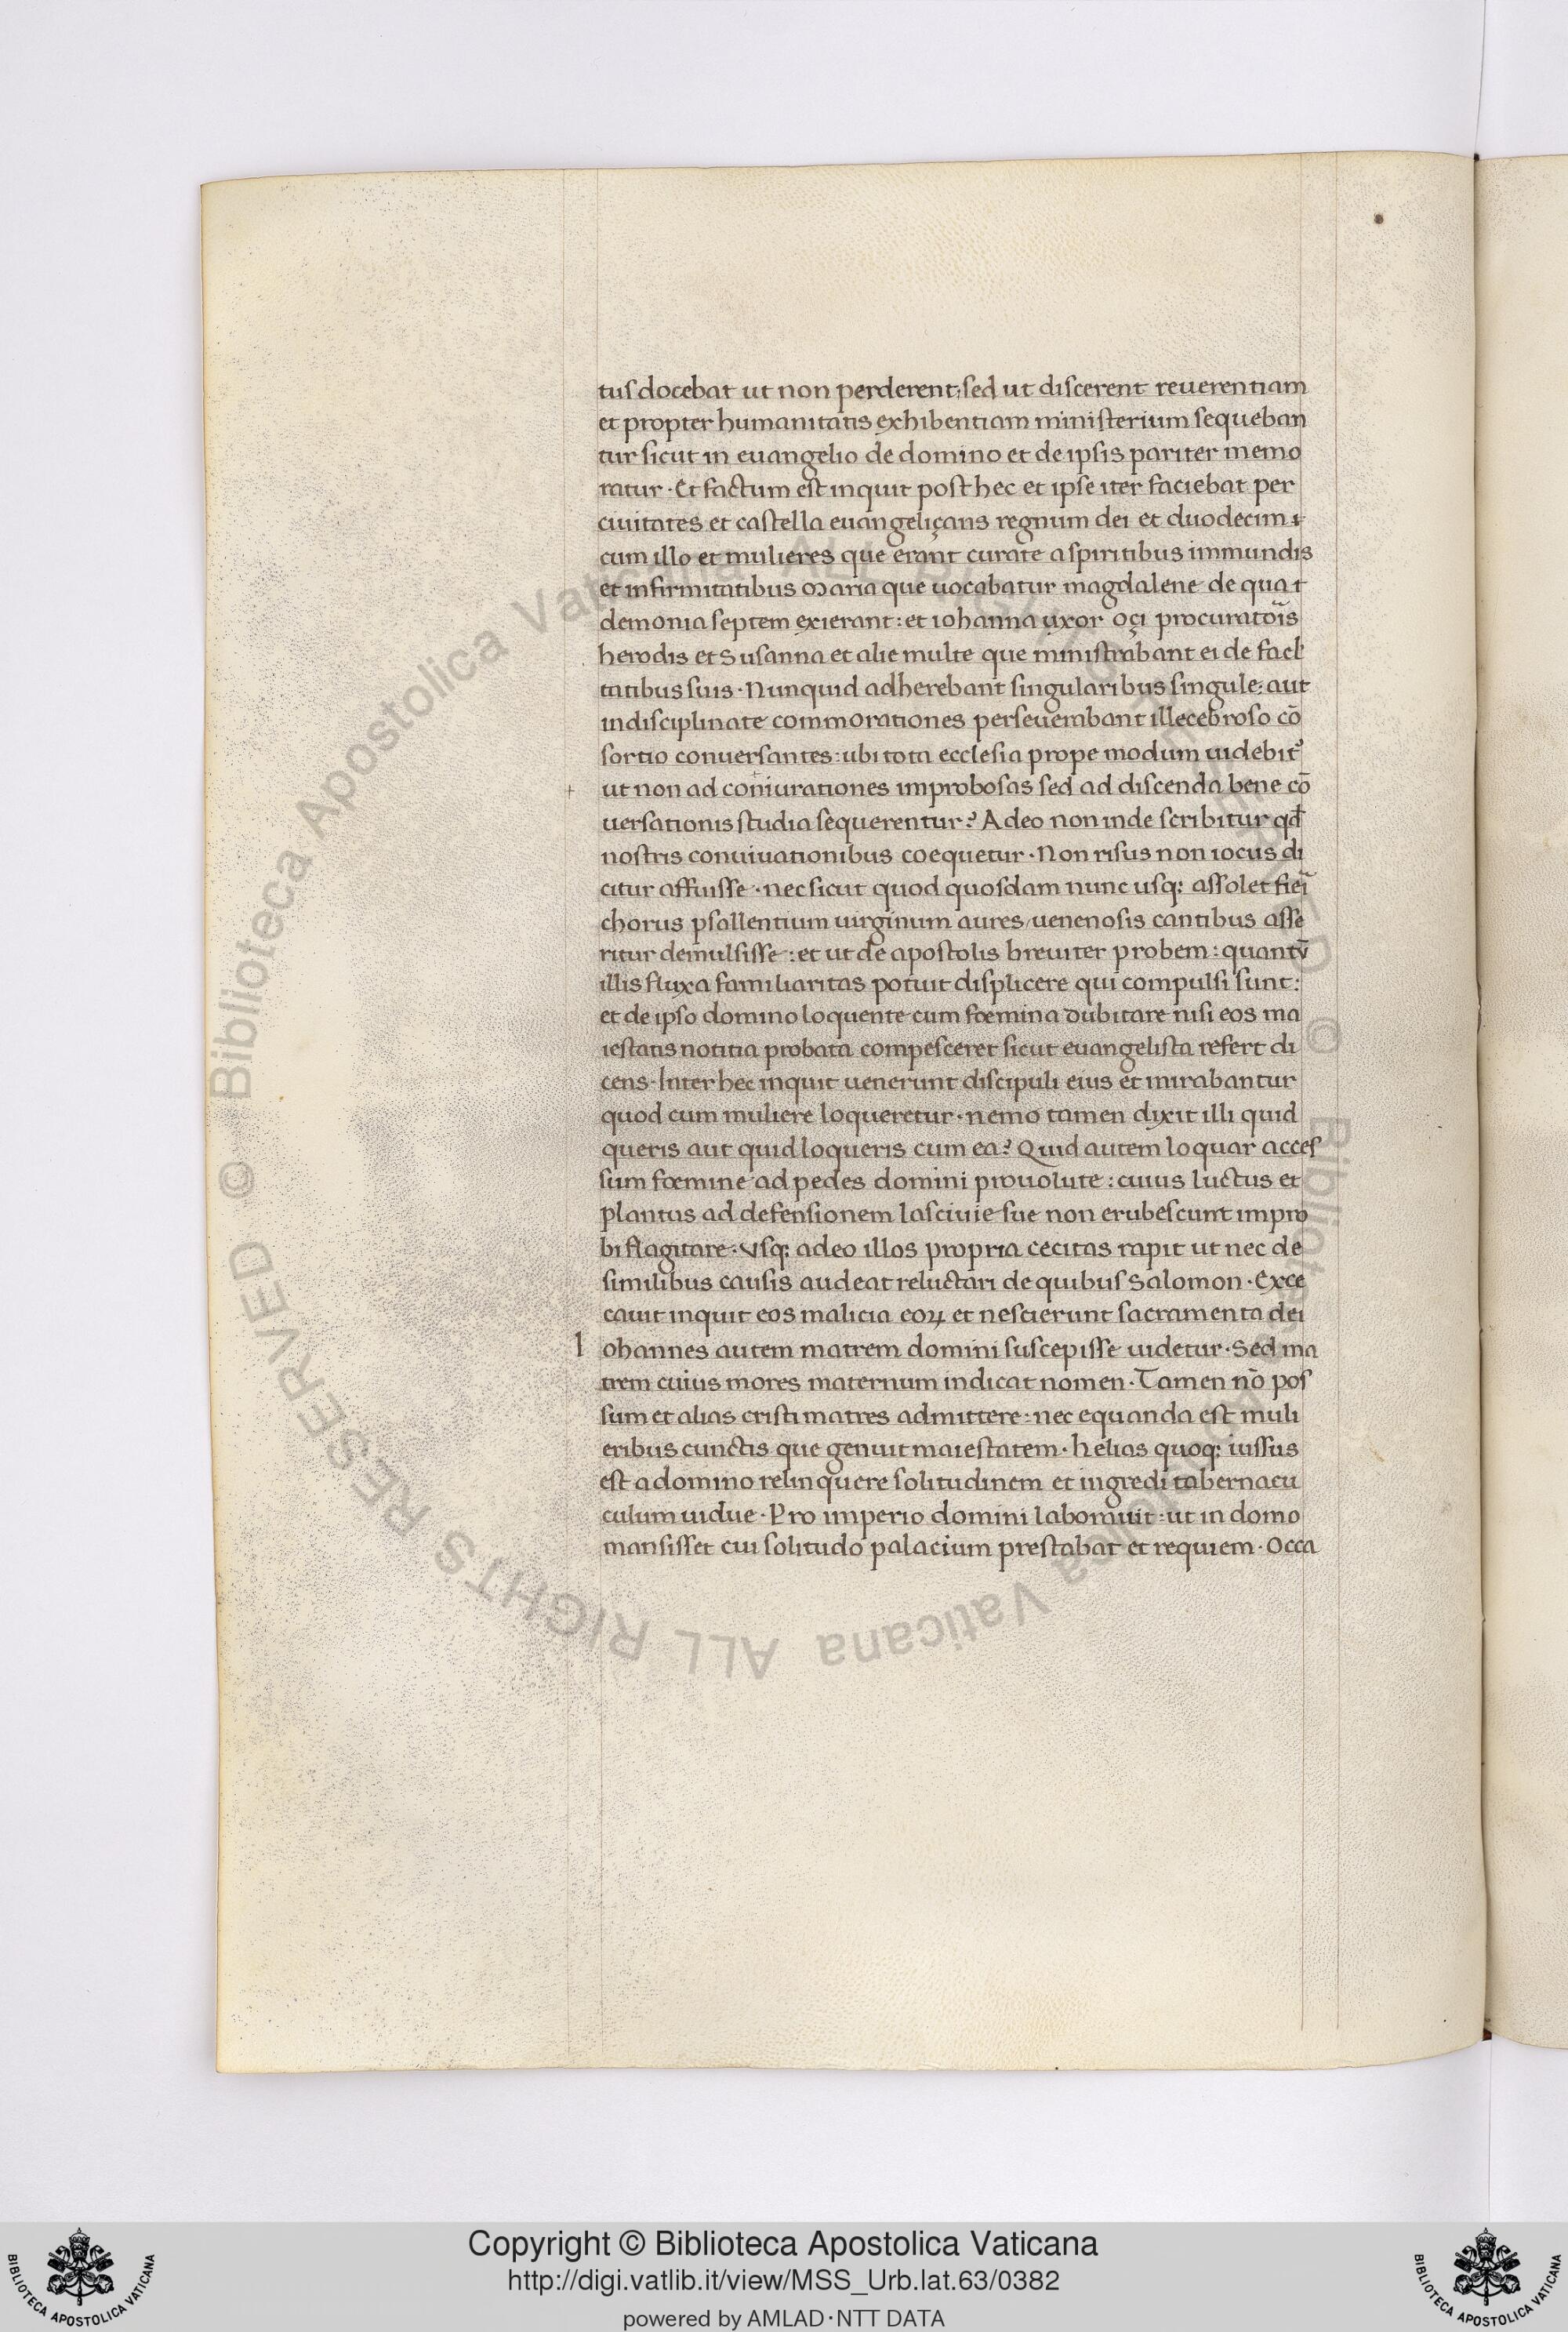 tus docebat ut non perderent: sed ut discerent reuerentiam
et propter humanitatis exhibentiam ministerium sequeban
tur sicut in euangelio de domino et de ipsis pariter memo
ratur · Et factum est inquit post hec et ipse iter faciebat per
ciuitates et castella euangeliçans regnum dei et duodecim
cum illo et mulieres que erant curate a spiritibus immundis
et infirmitatibus Maria que uocabatur magdalene de qua
demonia septem exierant : et iohanna uxor oçi procurato͠is
herodis et Susanna et alie multe que ministrabant ei de facl'
tatibus suis · Nunquid adherebant singularibus singule: aut
indisciplinate commorationes perseuerabant illecebroso cō
sortio conuersantes : ubi tota ecclesia prope modum uidebit᾿
ut non ad coniurationes improbosas sed ad discenda bene cō
uersationis studia sequerentur ? Adeo non inde scribitur qđ
nostris conuiuationibus coequetur · Non risus non iocus di
citur affuisse · nec sicut quod quosdam nunc usq; assolet fiēi
chorus psallentium uirginum aures uenenosis cantibus asse
ritur demulsisse : et ut de apostolis breuiter probem : quantū
illis fluxa familiaritas potuit displicere qui compulsi sunt :
et de ipso domino loquente cum fœmina dubitare nisi eos ma
iestatis notitia probata compesceret sicut euangelista refert di
cens · Inter hec inquit uenerunt discipuli eius et mirabantur
quod cum muliere loqueretur · nemo tamen dixit illi quid
queris aut quid loqueris cum ea ? Quid autem loquar acces
sum fœmine ad pedes domini prouolute : cuius luctus et
plantus ad defensionem lasciuie sue non erubescunt impro
bi flagitare · Vsq; adeo illos propria cecitas rapit ut nec de
similibus causis audeat reluctari de quibus Salomon · Exce
cauit inquit eos malicia eoꝝ et nescierunt sacramenta dei
Iohannes autem matrem domini suscepisse uidetur · Sed ma
trem cuius mores maternum indicat nomen · Tamen nō pos
sum et alias cristi matres admittere : nec equanda est muli
eribus cunctis que genuit maiestatem · helias quoq; iussus
est a domino relinquere solitudinem et ingredi tabernacu
culum uidue · Pro imperio domini laborauit : ut in domo
mansisset cui solitudo palacium prestabat et requiem · Occa
© Biblioteca Apostolica Vaticana ALL RIGHTS RESERVED © Biblioteca Apostolica Vaticana ALL RIGHTS RESERVED
Copyright © Biblioteca Apostolica Vaticana
http://digi.vatlib.it/view/MSS_Urb.lat.63/0382
powered by AMLAD·NTT DATA
BIBLIOTECA APOSTOLICA VATICANA
BIBLIOTECA APOSTOLICA VATICANA